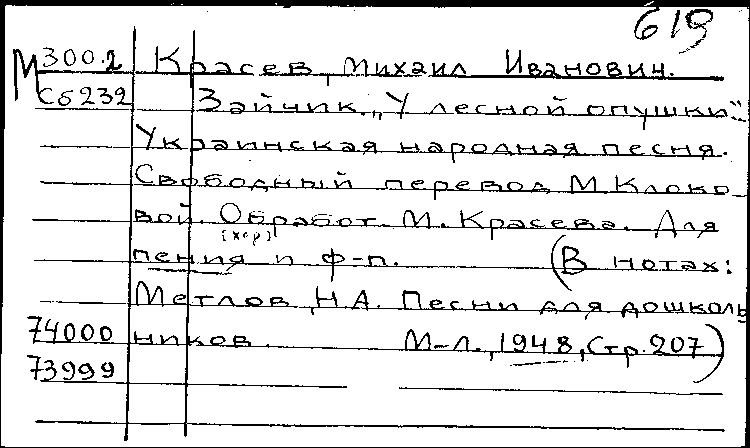 619
М 300.2 Красев, Михаил Иванович.
Сб 232 Зайчик. „У лесной опушки".
Украинская народная песня.
Свободный перевод М. Клоко-
вой. Обработ. М. Красева. Для
[хор]
пения и ф-п. (В нотах:
Метлов, Н.А. Песни для дошколь
74000 ников. М-Л., 1948, Стр. 207)
73999